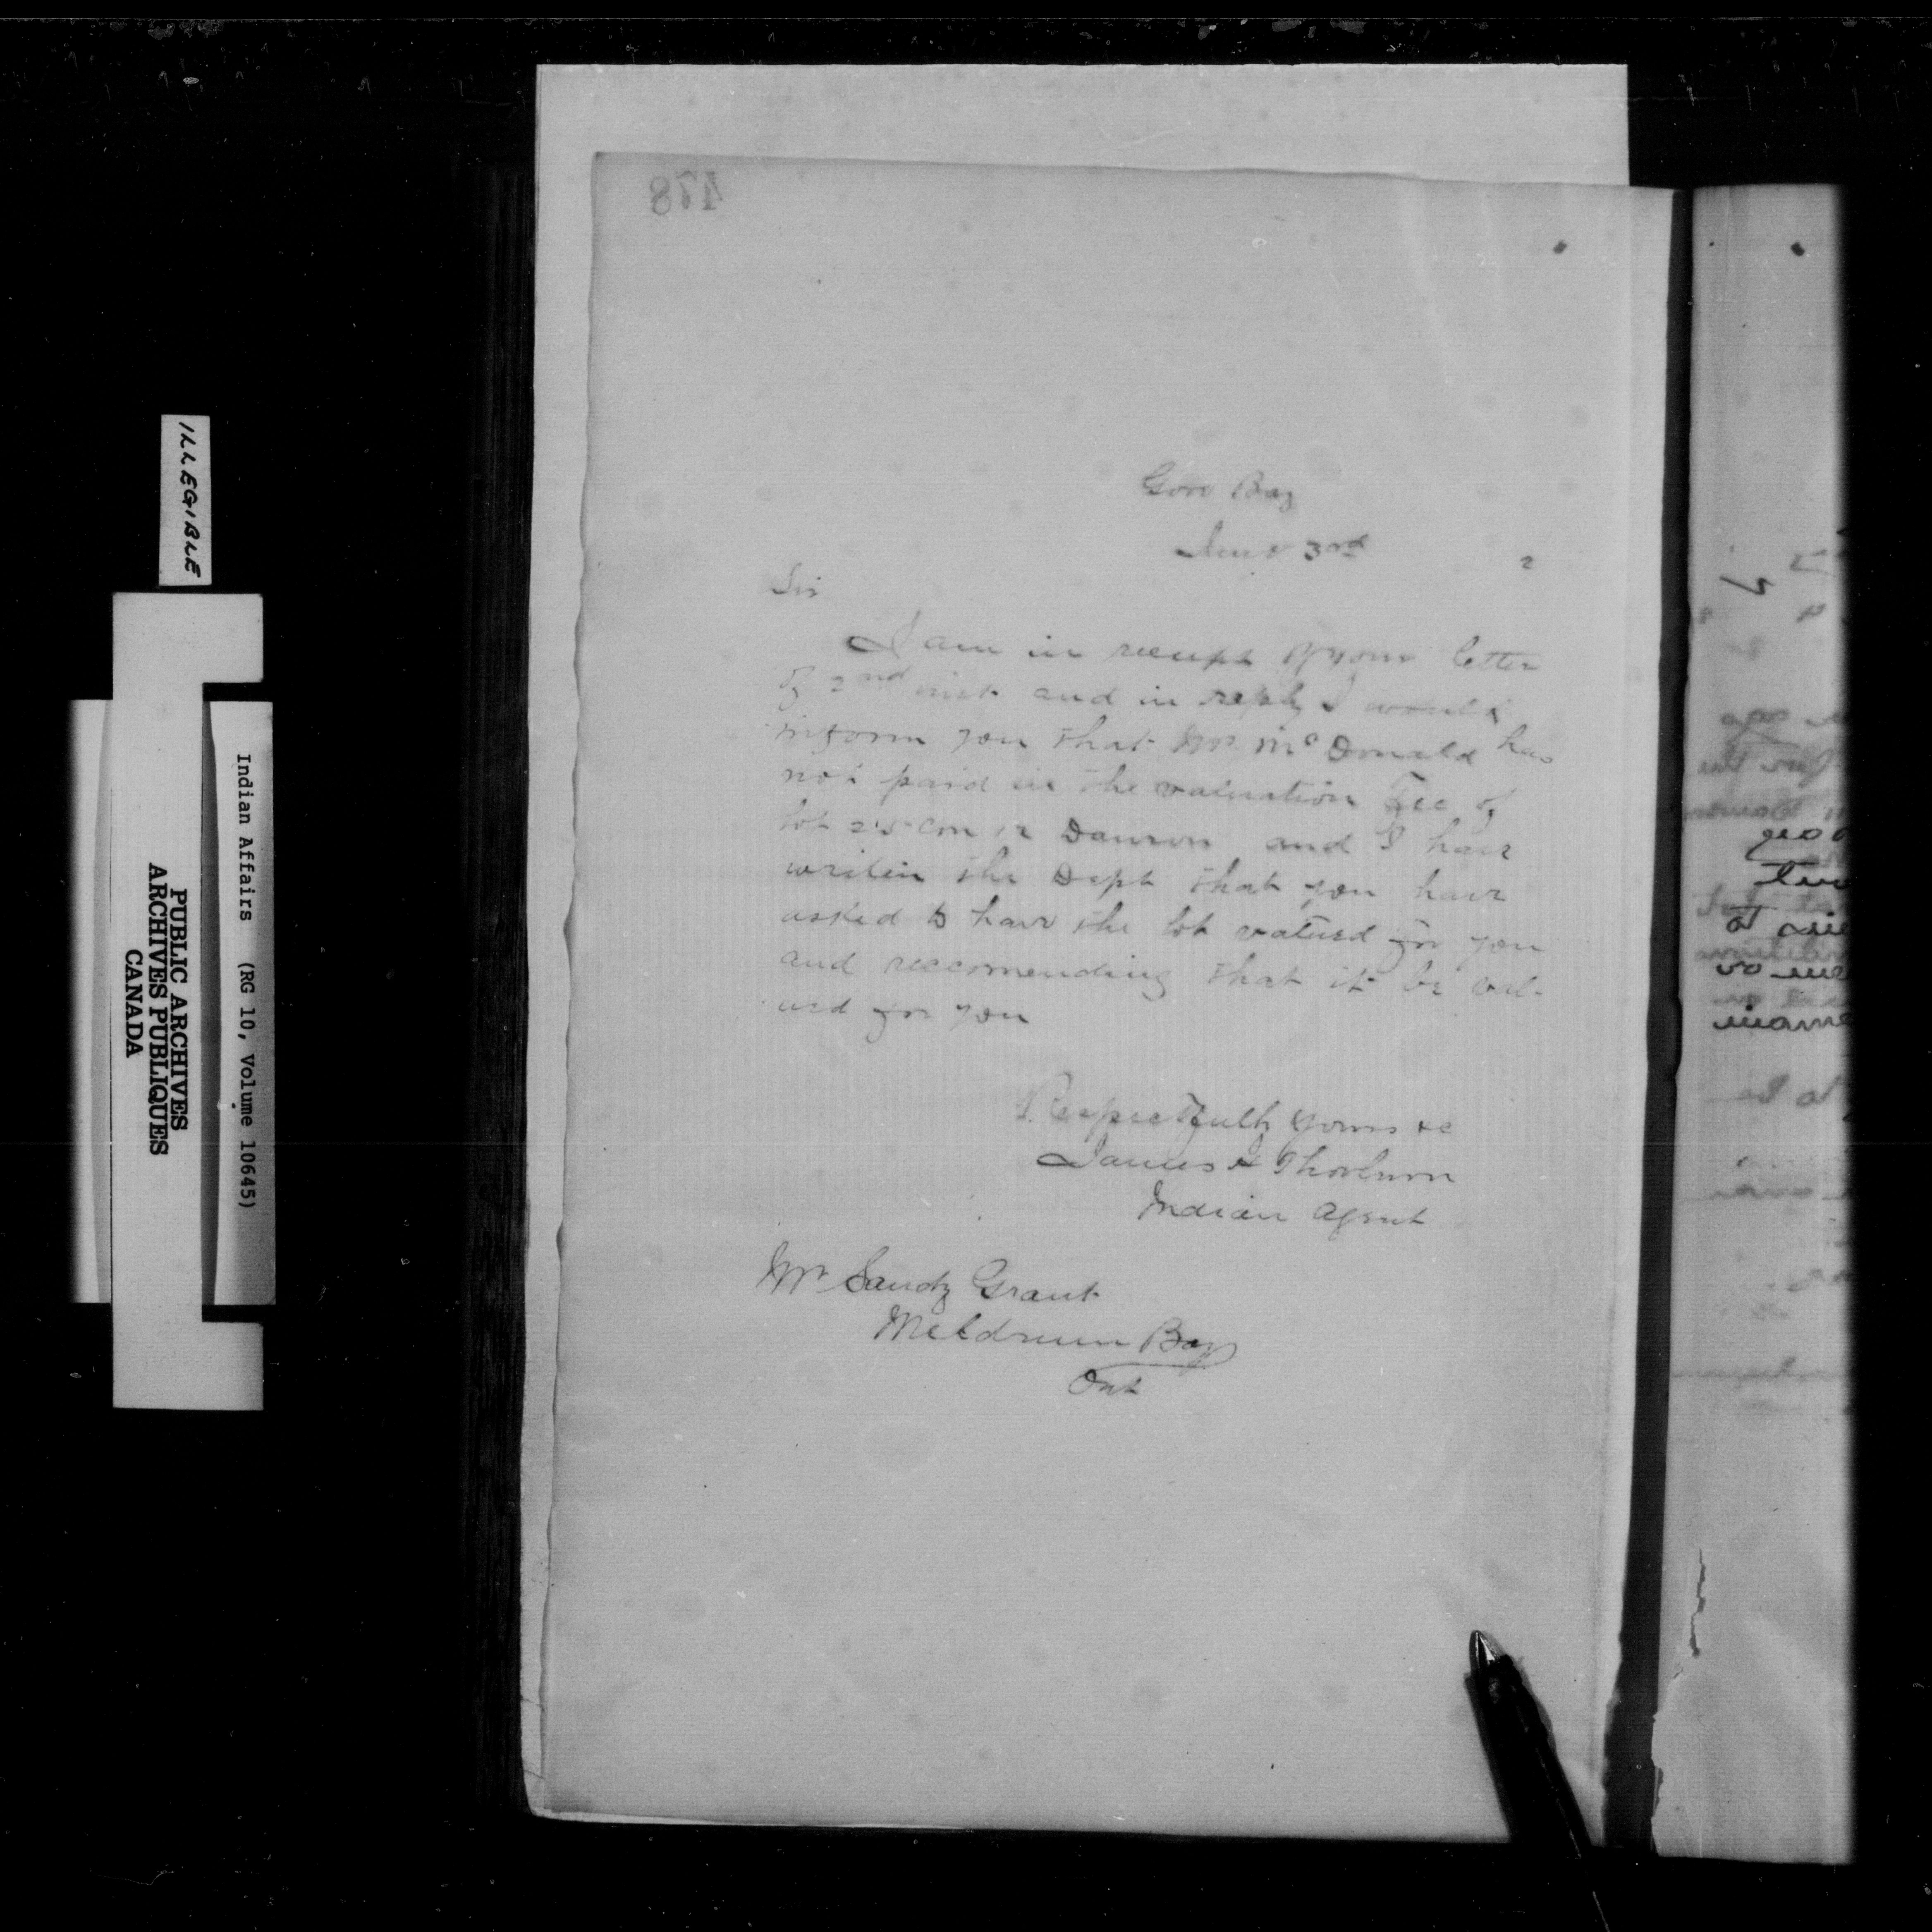 478
Gore Bay
June 3rd 2
Sir
I am in receipt of your letter
of 2nd inst and in reply I would
inform you that Mr. McDonald has
not paid in the valuation Fee of
lot 25 con 12 Dawson and I have
writen the Dept that you have
asked to have the lot valued for you
and reccomending that it be val-
ued for you
Respectfully Yours &c
James H Thorburn
Indian Agent
Mr Sandy Grant
Meldrum Bay
Ont
ILLEGIBLE
Indian Affairs (RG 10, Volume 10645)
PUBLIC ARCHIVES
ARCHIVES PUBLIQUES
CANADA